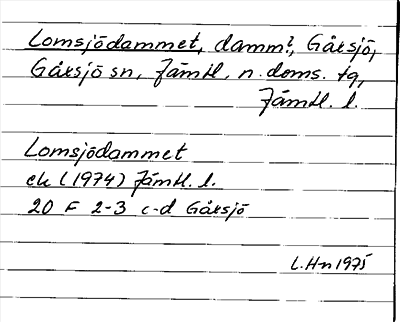 Lomsjödammet, damm?, Gåxsjö,
Gåxsjö sn, Jämtl. n. doms. tg,
Jämtl. l.
Lomsjödammet
ek (1974) Jämtl. l.
20 F 2-3 c-d Gåxsjö
L. Hn 1975